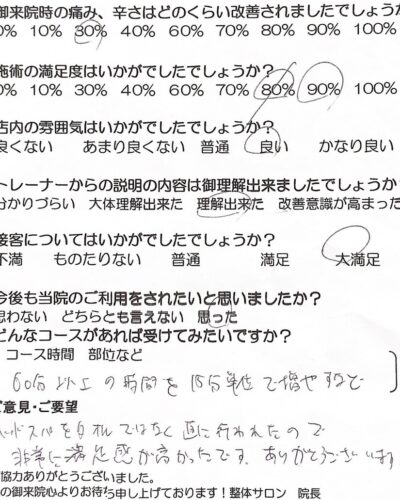 御来院時の痛み、辛さはどのくらい改善されましたでしょうか
0% 10% 30% 40% 60% 70% 80% 90% 100%
施術の満足度はいかがでしたでしょうか?
0% 10% 30% 40% 60% 70% 80% 90% 100%
店内の雰囲気はいかがでしたでしょうか?
良くない あまり良くない 普通 良い かなり良い
トレーナーからの説明の内容は御理解出来ましたでしょうか
分かりづらい 大体理解出来た 理解出来た 改善意識が高まった
接客についてはいかがでしたでしょうか?
不満 ものたりない 普通 満足 大満足
今後も当院のご利用をされたいと思いましたか?
思わない どちらとも言えない 思った
どんなコースがあれば受けてみたいですか?
コース時間 部位など
60分以上の時間を15分単位で増やすなど
ご意見・ご要望
ヘッドスパをタオルではなく直に行われたので
非常に満足感が高かったです。ありがとうございます
協力ありがとうございました。
の御来院心よりお待ち申し上げております!整体サロン 院長